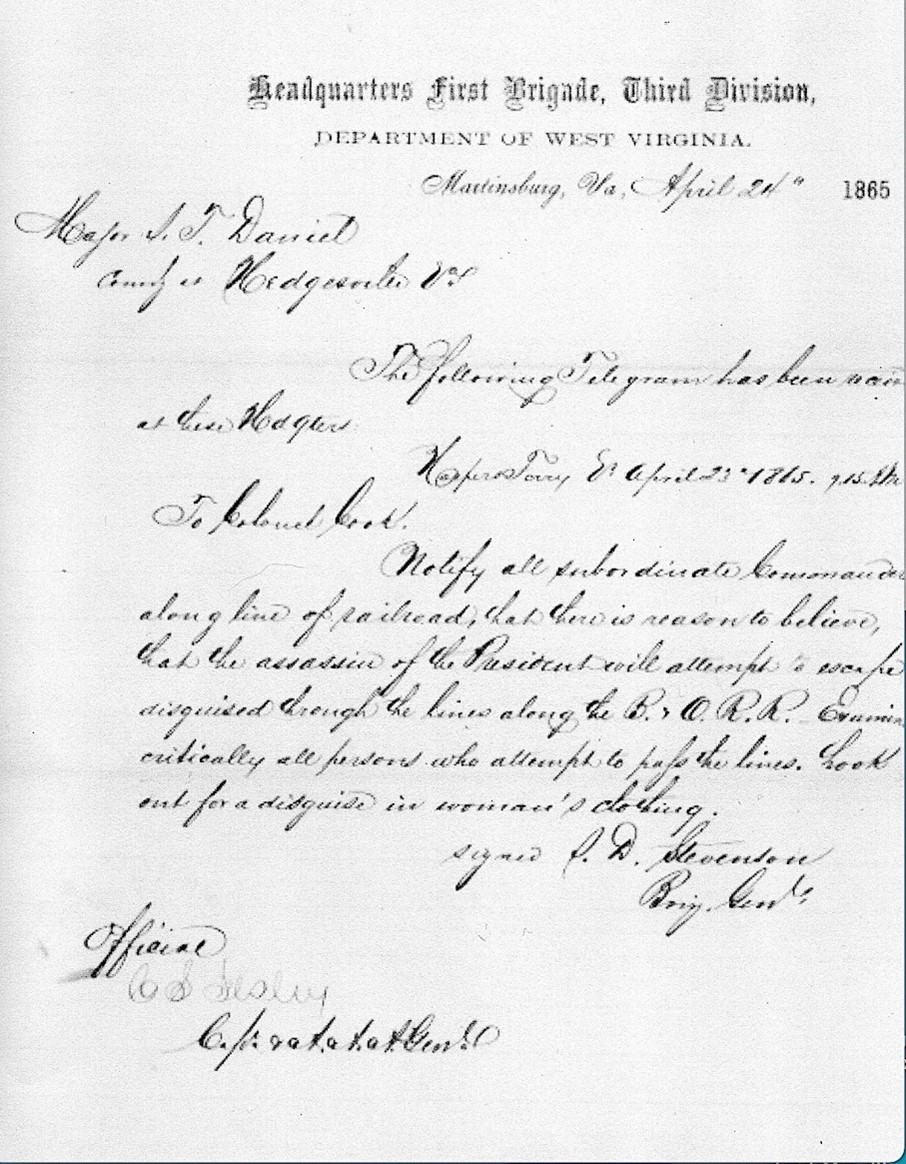 Headquarters First Brigade, Third Division,
DEPARTMENT OF WEST VIRGINIA.
Martinsburg, Va, April 24" 1865
Major S. T. Daniel
at Hedgesville Va
The following Telegram has been
at these Hdqters.
Harpers Ferry Va April 23" 1865. 9.15.
To Colonel Cook.
Notify all subordinate Commander
along line of railroad, that there is reason to believe,
that the assassin of the President will attempt to escape
disguised through the lines along the B. & O. R. R. Examin
critically all persons who attempt to pass the lines. Look
out for a disguise in woman's clothing.
signed J. D. Stevenson
Brig. Genl.
Official
C S
Genl